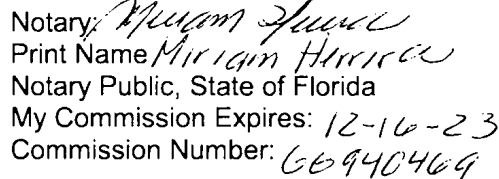 Notary: Miriam Herrera
Print Name Miriam Herrera
Notary Public, State of Florida
My Commission Expires: 12-16-23
Commission Number: GG940469